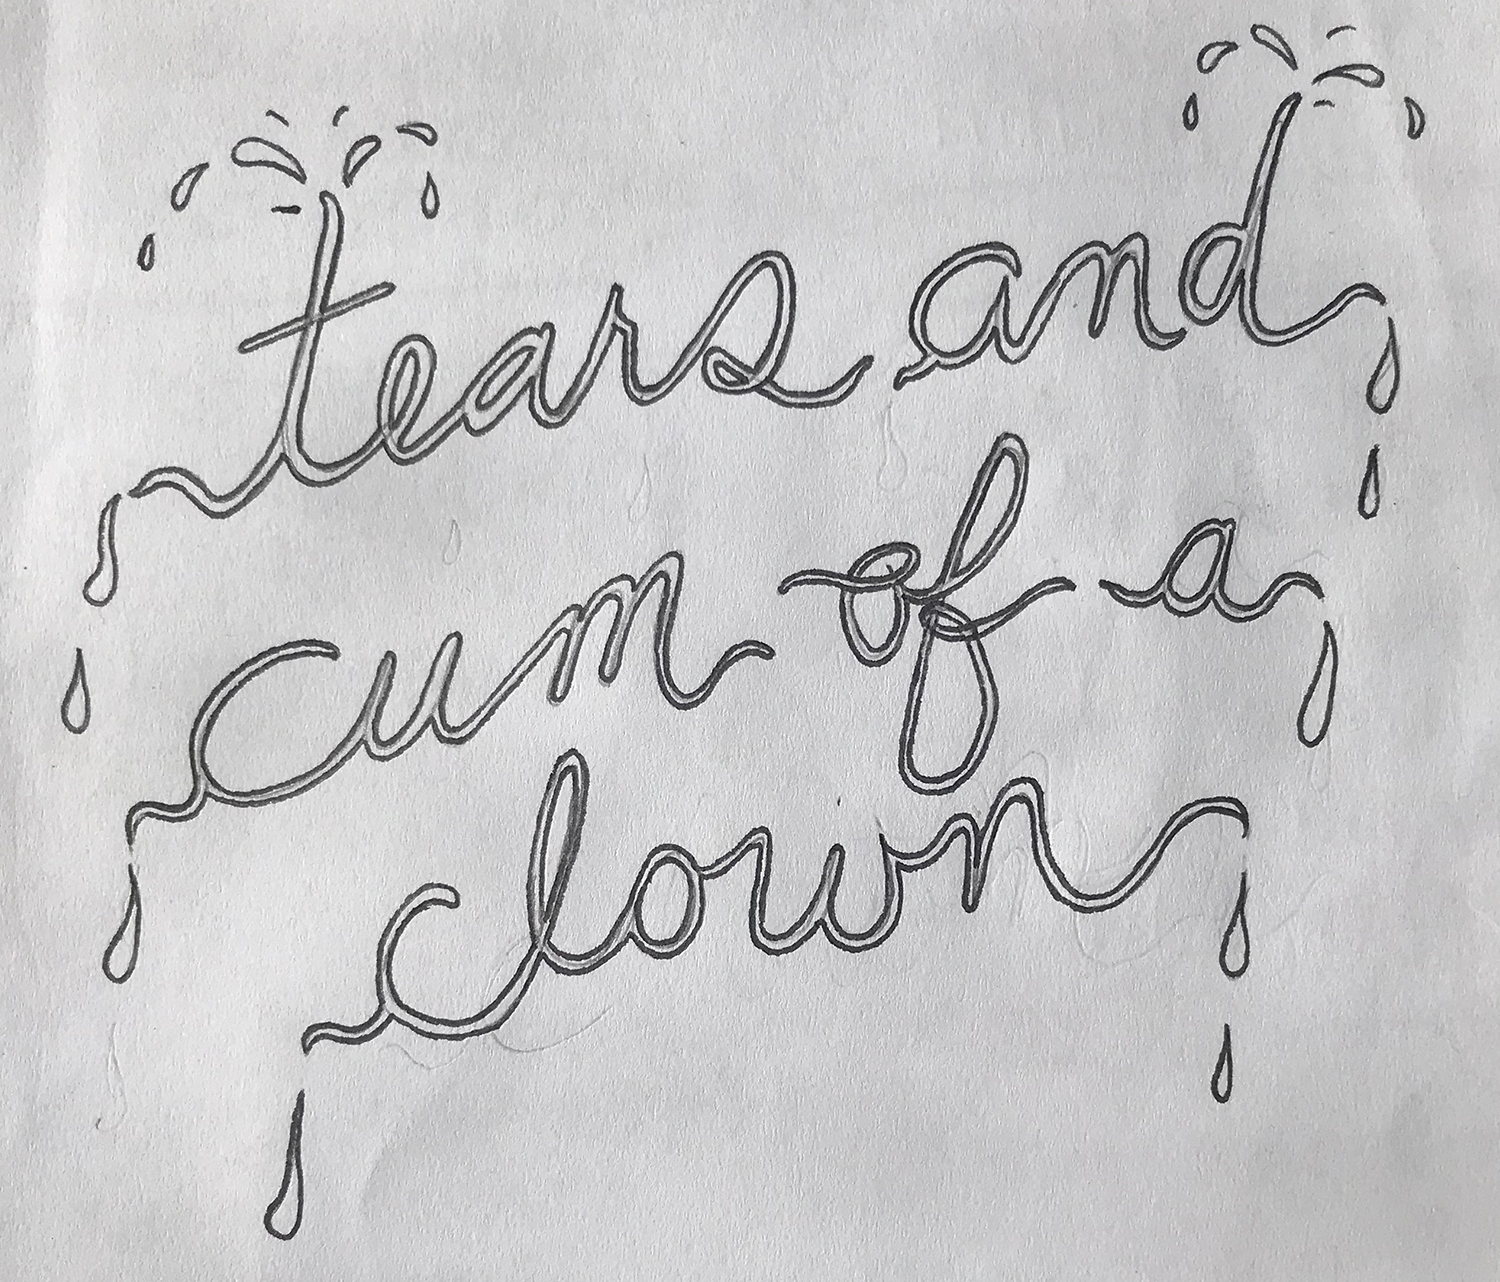 tears and
cum of a
clown